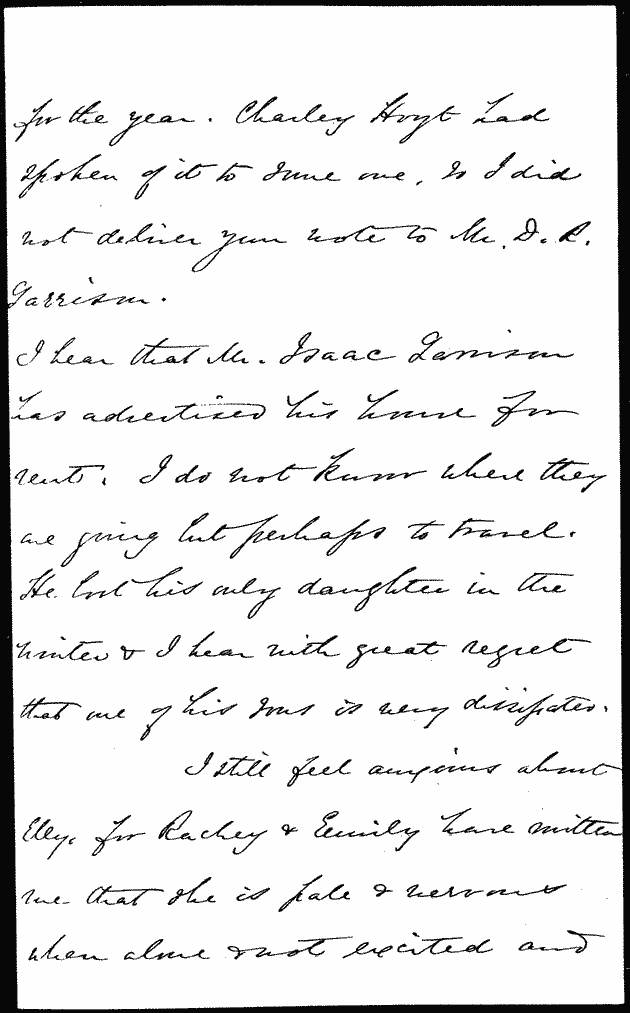 for the year. Charley Hoyt had
spoken of it to some one, so I did
not deliver your note to Mr. D. R.
Garrison.
I hear that Mr. Isaac Garrison
has advertised his house for
rent. I do not know where they
are going but perhaps to travel.
He lost his only daughter in the
winter & I hear with great regret
that one of his sons is very dissipated.
I still feel anxious about
Elly. for Rachey & Emily have written
me that she is pale & nervous
when alone & not excited and